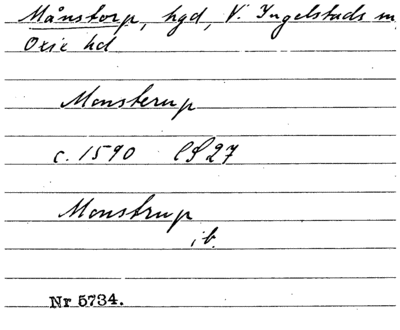 Månstorp, hgd, V. Ingelstads sn
Oxie hd
Monsterup
c. 1590 LS 27
Monstrup
ib.
Nr 5734.